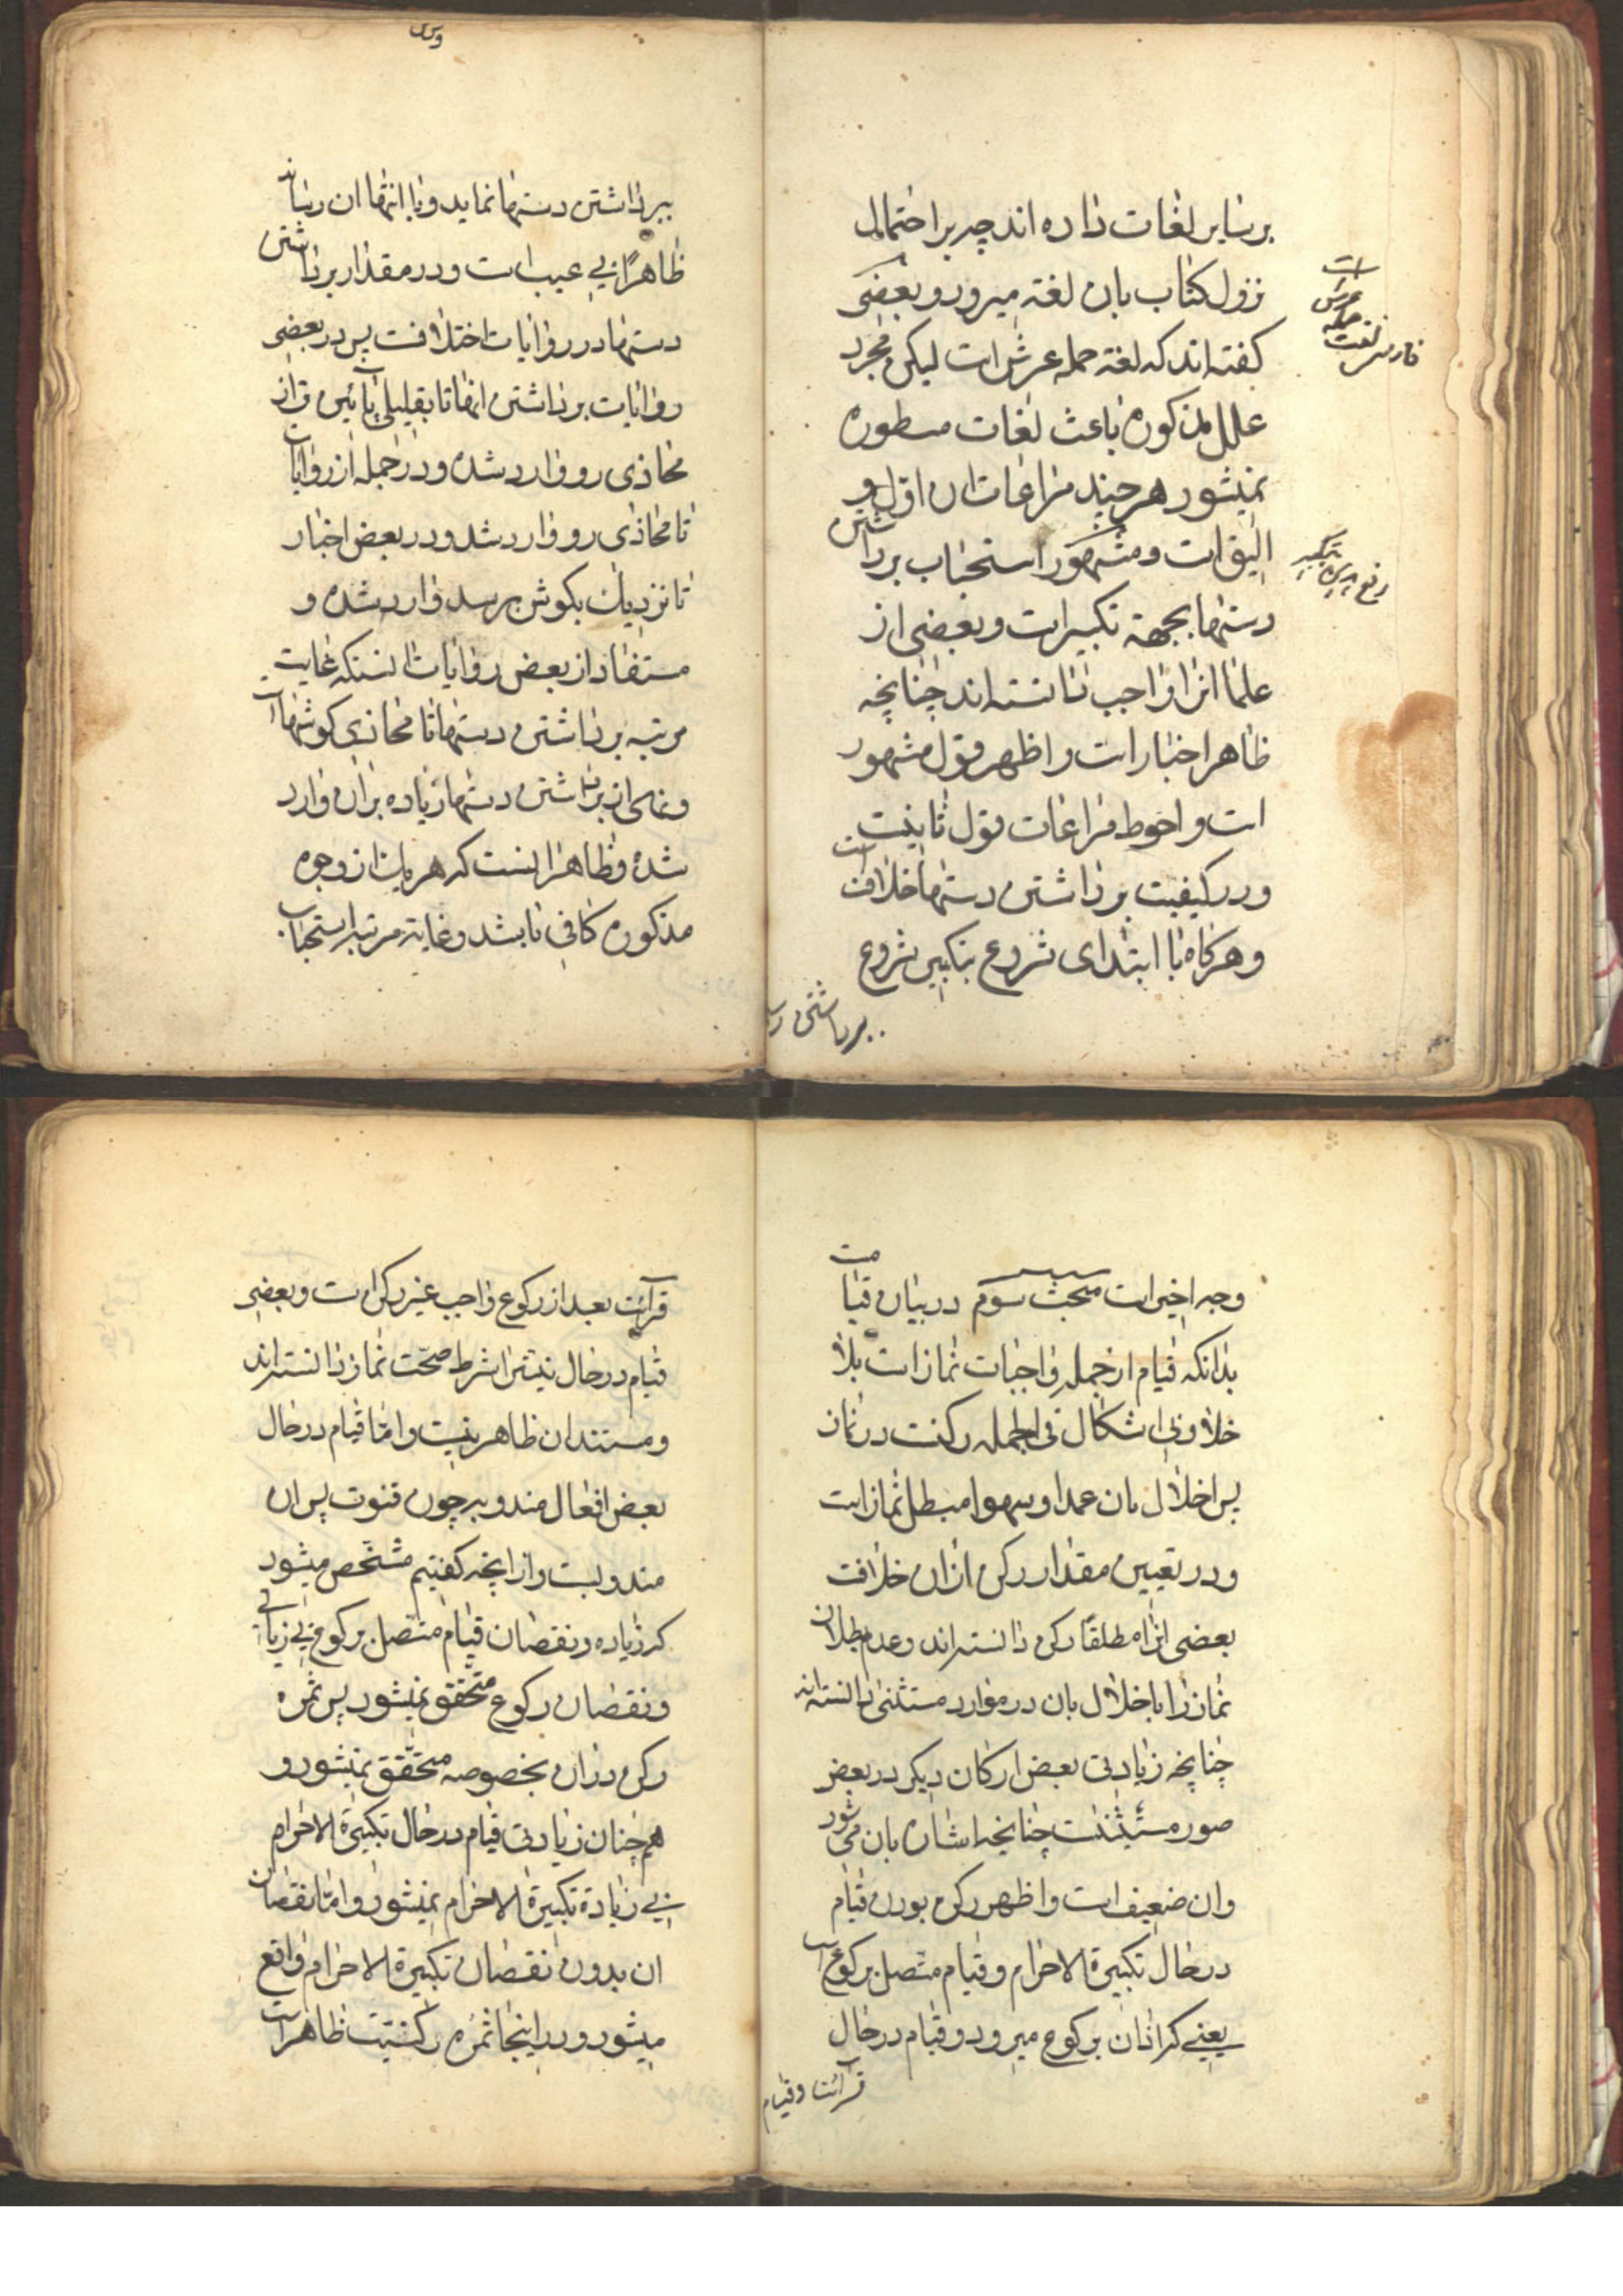 بر سایر لغات داده‌اند چه بر احتمال
نزول کتاب بان لغة میرود و بعضی
کفته‌اند که لغة حمله عرش است لیکن مجرد
علل مذکوره باعث لغات مسطوره
نمیشود هر چند مراعات ان اولی و
الیق است و مشهور استحباب برداشتن
دستها بجهة تکبیر است و بعضی از
علما انرا واجب دانسته‌اند چنانچه
ظاهر اخبار است و اظهر قول مشهور
است و احوط مراعات قول ثانیست
و در کیفیت برداشتن دستها خلافست
و هرکاه با ابتدای شروع بتکبیر شروع
فارسی لغت حمله عرش است
رفع یدین تکبیر
برداشتن
ببرداشتن دستها نماید و با انتها ان رساند
ظاهرًا بی عیب است و در مقدار برداشتن
دستها در روایات اختلافست پس در بعضی
روایات برداشتن انها تا بقلیلی پائین تر از
محاذی رو وارد شده و در جمله از روایات
تا محاذی رو وارد شد و در بعض اخبار
تا نزدیك بکوش برسد وارد شده و
مستفاد از بعض روایات انستکه غایت
مرتبه برداشتن دستها تا محاذی کوشها است
و نهی از برداشتن دستها زیاده بران وارد
شده و ظاهر انست که هر یك از وجوه
مذکوره کافی باشد و غایة مرتبه استحباب
وجه اخیر است مبحث سوم در بیان قیامت
بدانکه قیام از جمله واجبات نماز است بلا
خلاف و بی اشکال فی الجمله رکنست در نماز
پس اخلال بان عمدا و سهوا مبطل نماز است
و در تعیین مقدار رکن ازان خلافست
بعضی انرا مطلقًا رکن دانسته‌اند و عدم بطلان
نماز را باخلال بان در موارد مستثنی دانسته‌اند
چنانچه زیادتی بعض ارکان دیکر در بعض
صور مستثنت چنانچه اشاره بان می شود
وان ضعیف است و اظهر رکن بودن قیام
در حال تکبیرة الاحرام و قیام متصل برکوع است
یعنی که ازان برکوع میرود و قیام در حال
قرائت و قیام
قرآئت بعد از رکوع واجب غیر رکن است و بعضی
قیام در حال نیت را شرط صحّت نماز دانسته‌اند
و مستند ان ظاهر نیست و امّا قیام در حال
بعض افعال مندوبه چون قنوت پس ان
مندوبست و از انچه کفتیم مشخّص میشود
که زیاده و نقصان قیام متصل برکوع بی زیادتی
و نقصان رکوع متحقّق نمیشود پس ثمره
رکن دران بخصوصه متحقّق نمیشود و
هم چنان زیادتی قیام در حال تکبیرة الاحرام
بی زیادة تکبیرة الاحرام نمیشود و امّا نقصان
ان بدون نقصان تکبیرة الاحرام واقع
میشود و در اینجا ثمره رکنیّت ظاهر است